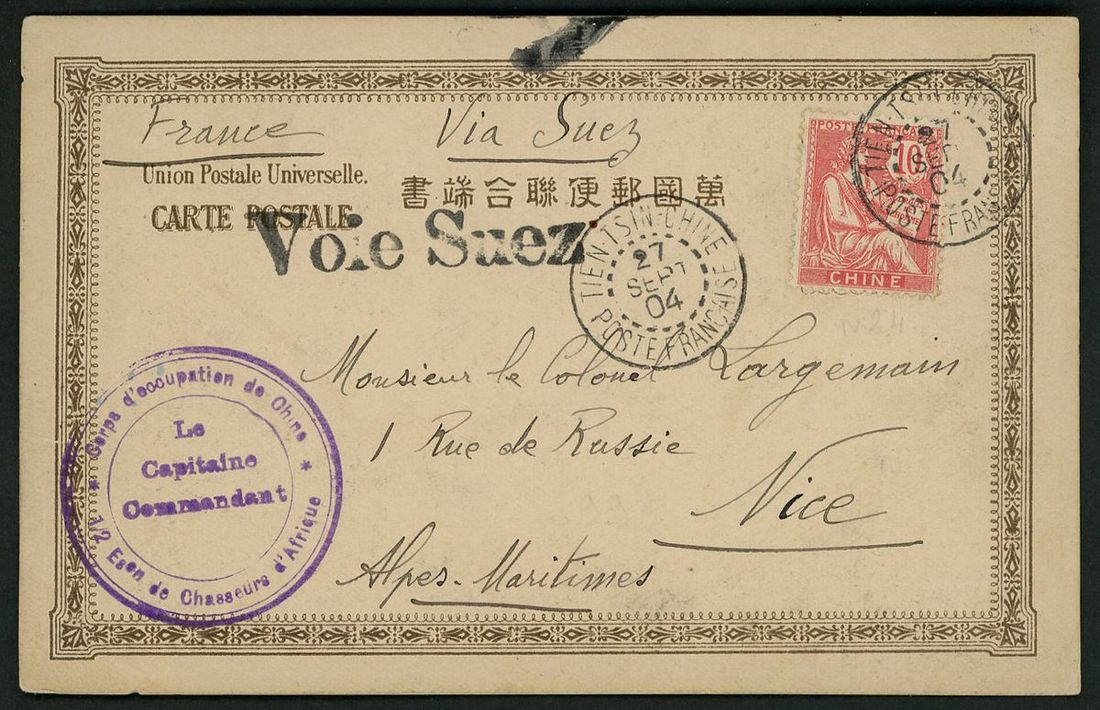 France Via Suez
Union Postale Universelle.
CARTE POSTALE
萬國郵便聯合端書
Voie Suez
TIEN-TSIN-CHINE
27
SEPT
04
POSTE FRANÇAISE
POSTES FRANÇAISES
10
CHINE
TIEN-TSIN
27
SEPT
04
POSTE FRANÇAISE
Monsieur le Colonel Largemain
1 Rue de Russie
Nice
Alpes-Maritimes
Corps d'occupation de Chine
Le
Capitaine
Commandant
* 1/2 Eson de Chasseurs d'Afrique *